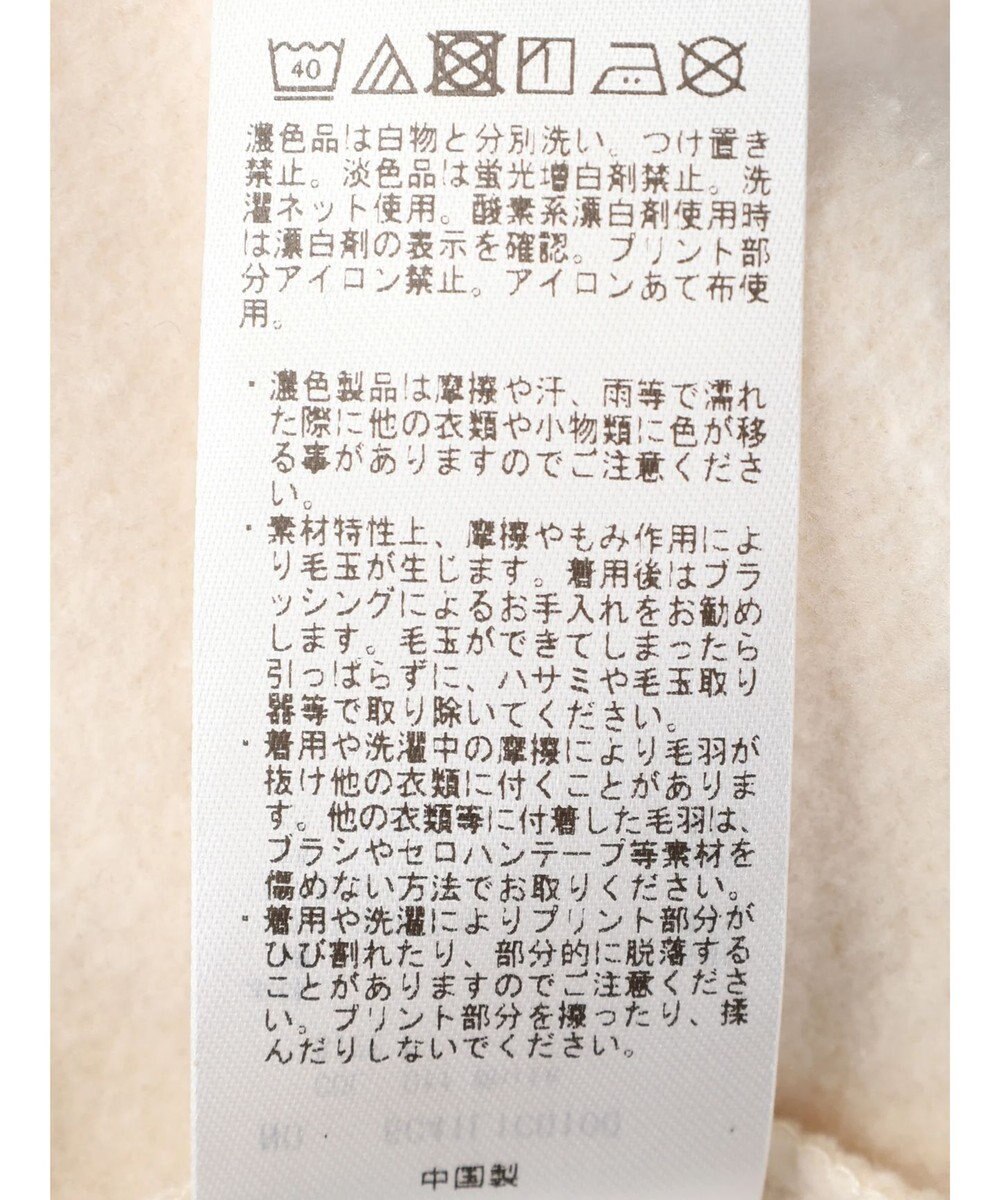 40
濃色品は白物と分別洗い。つけ置き
禁止。淡色品は蛍光増白剤禁止。洗
濯ネット使用。酸素系漂白剤使用時
は漂白剤の表示を確認。プリント部
分アイロン禁止。アイロンあて布使
用。
・濃色製品は摩擦や汗、雨等で濡れ
た際に他の衣類や小物類に色が移
る事がありますのでご注意くださ
い。
・素材特性上、摩擦やもみ作用によ
り毛玉が生じます。着用後はブラ
ッシングによるお手入れをお勧め
します。毛玉ができてしまったら
引っぱらずに、ハサミや毛玉取り
器等で取り除いてください。
・着用や洗濯中の摩擦により毛羽が
抜け他の衣類に付くことがありま
す。他の衣類等に付着した毛羽は、
ブラシやセロハンテープ等素材を
傷めない方法でお取りください。
・着用や洗濯によりプリント部分が
ひび割れたり、部分的に脱落する
ことがありますのでご注意くださ
い。プリント部分を擦ったり、揉
んだりしないでください。
中国製